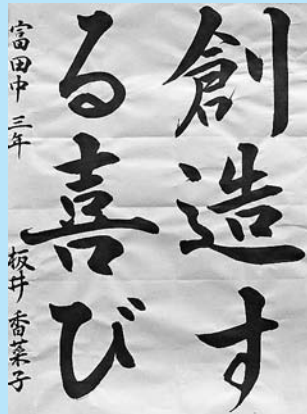 創造す
る喜び
富田中 三年 板井 香菜子